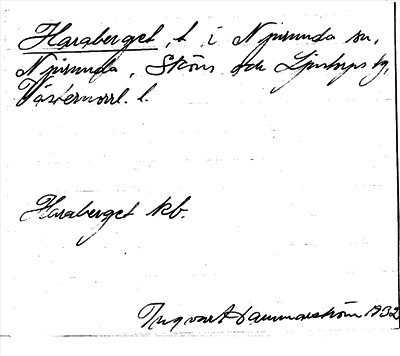 Haraberget, t. i Njurunda sn,
Njurunda, Sköns och Ljustorps tg,
Västernorrl. l.
Haraberget kb.
Ingvar Hammarström 1932